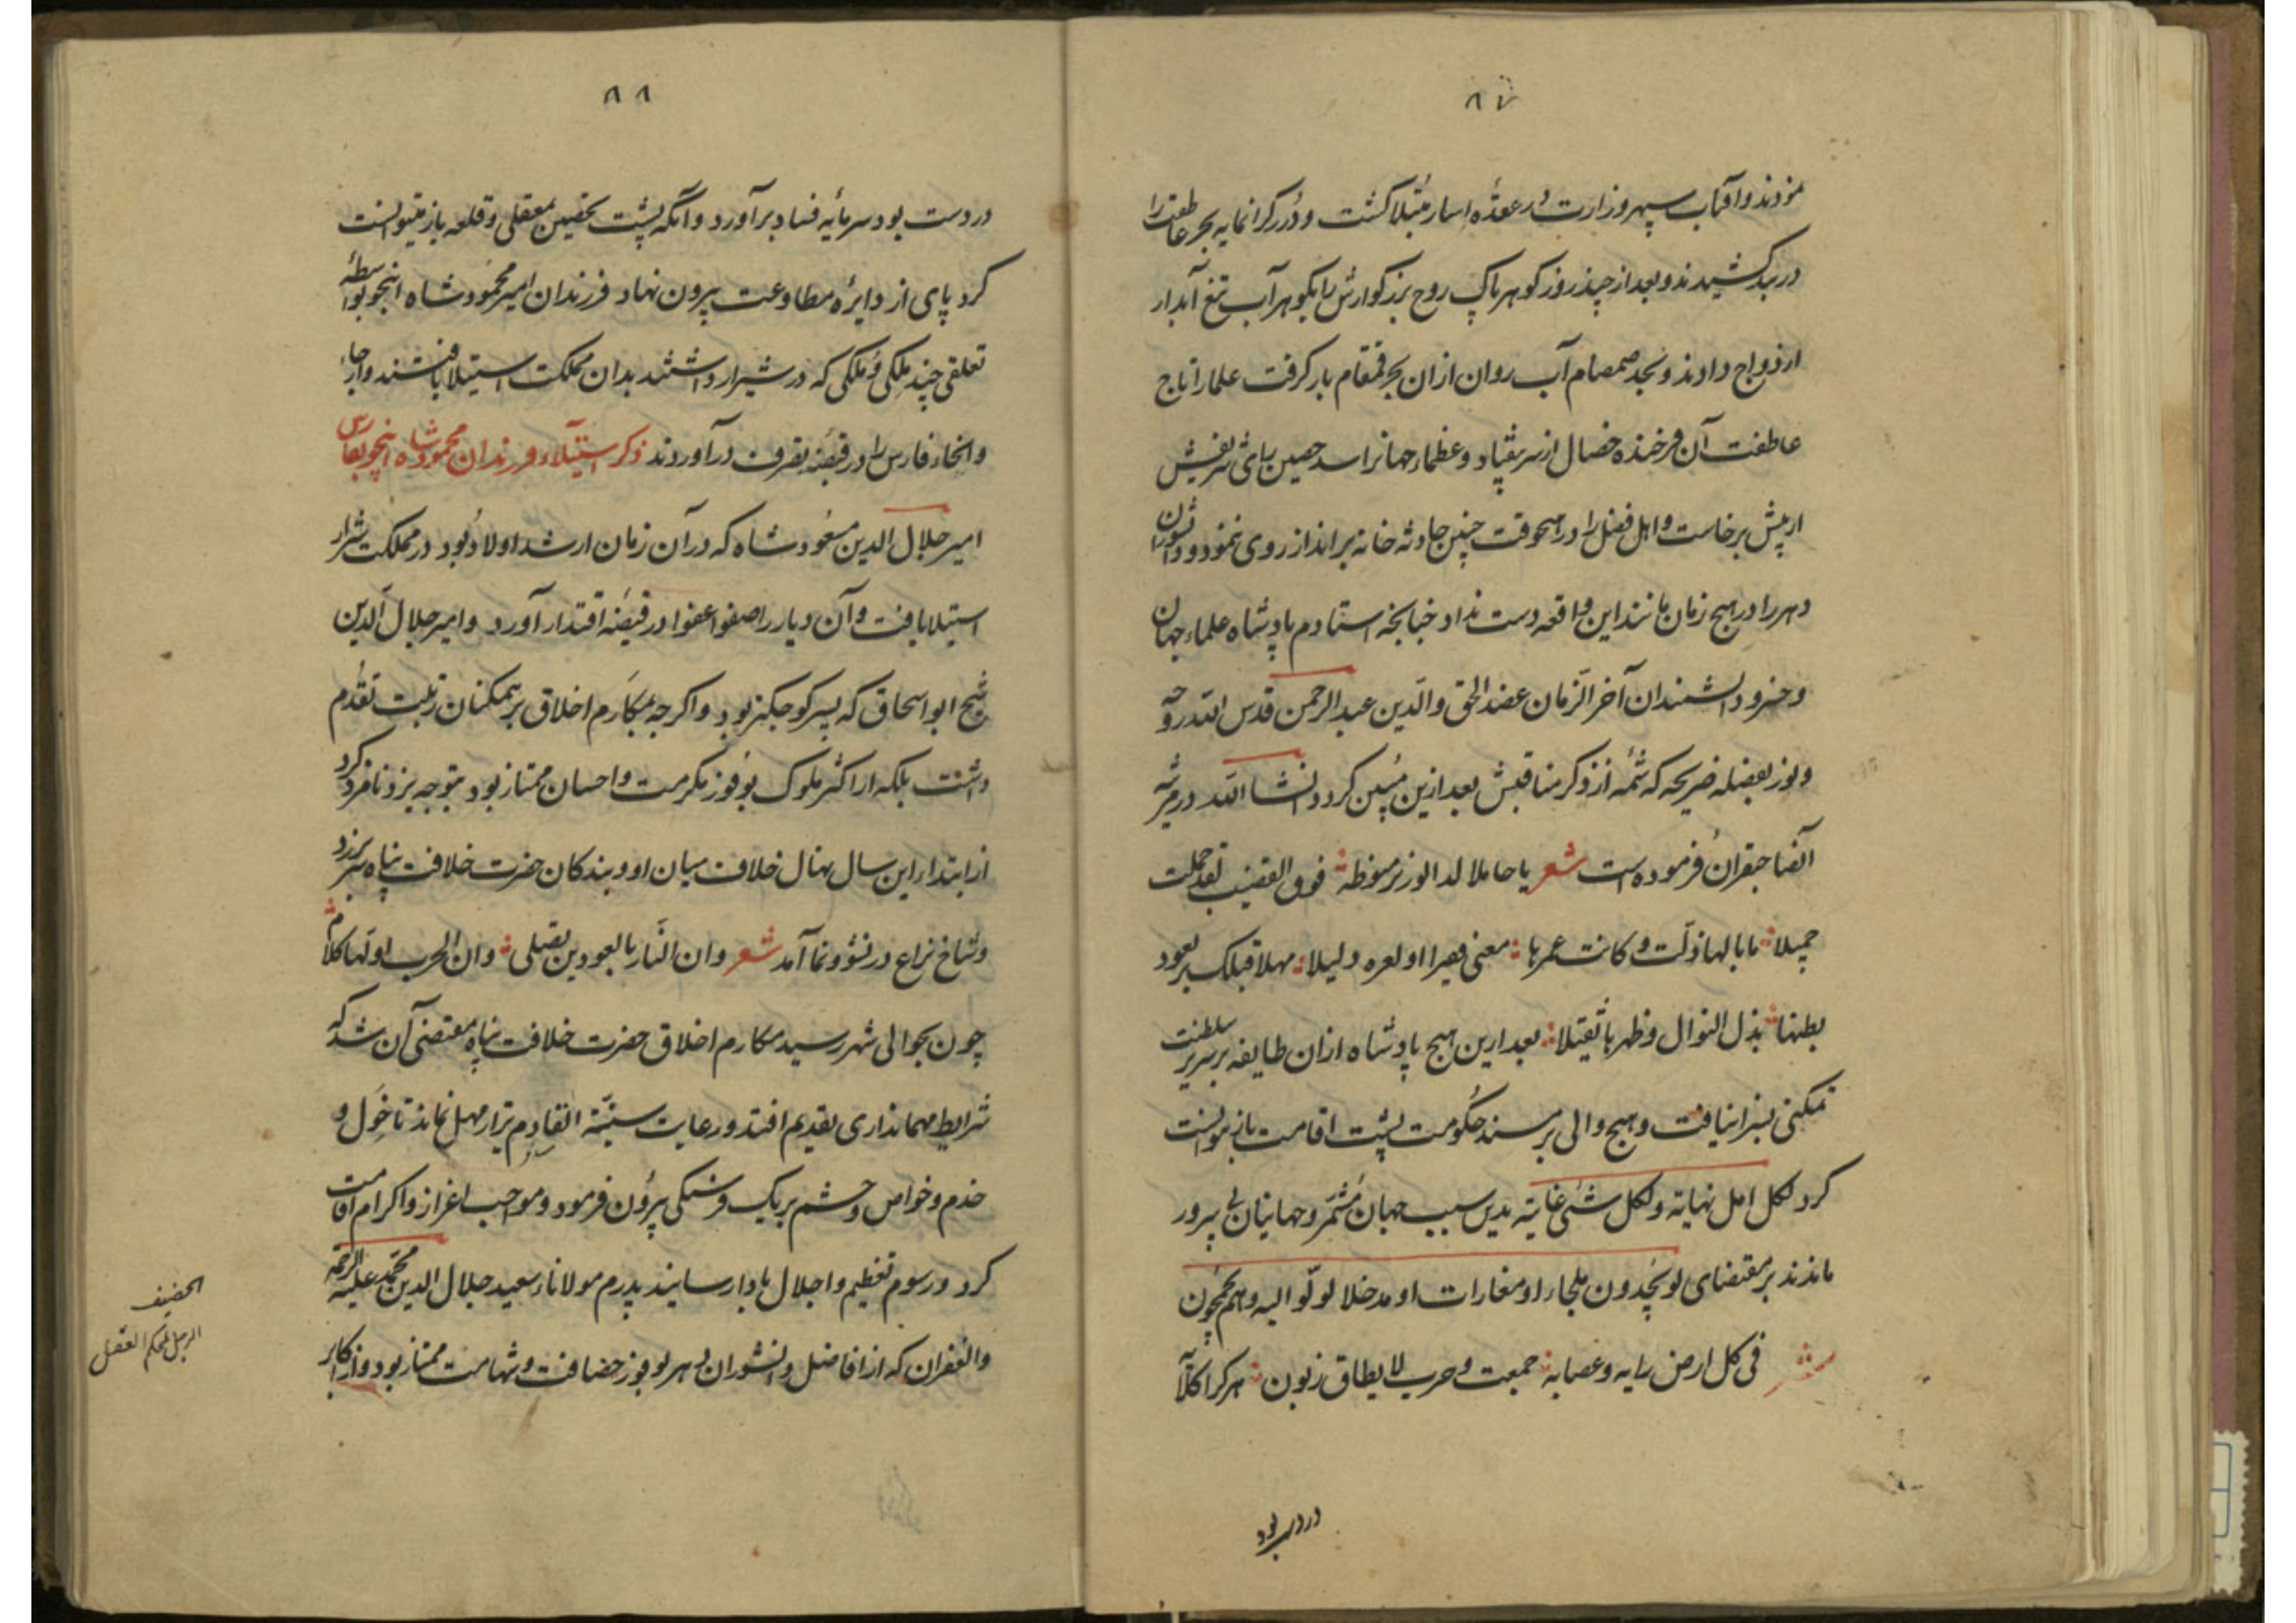 ٨٧
نمودند و آفتاب سپهر وزارت در عقده اسار مبتلا گشت و در گرانمایه بحر عاطفت را
در بند کشیدند و بعد از چند روز گوهر پاک روح بزرگوارش را بگوهر آب تیغ آبدار
ازدواج دادند و بحد صمصام آب روان ازان بحر قمقام بار گرفت علما را تاج
عاطفت آن فرخنده خصال از سر بیفتاد و عظماء جهانرا سد حصین رای شریفش
از پیش برخاست و اهل فضل را در هیچ وقت چنین حادثه خانه برانداز روی ننمود و دانشوران
دهر را در هیچ زمان مانند این واقعه دست نداد چنانچه استادم پادشاه علماء جهان
و خسرو دانشمندان آخر الزمان عضد الحق والدین عبد الرحمن قدس الله روحه
و نور بفضله ضریحه که شمه از ذکر مناقبش بعد ازین مبین کردد انشا الله در مرثیه
آنصاحبقران فرموده است شعر یا حاملا فوق القضیب لقد حملت
جمیلا ما بالها ذلت و کانت عمرها مهلا قبلک بعود
بطنها بذل النوال و ظهرها تقبیلا بعد ازین هیچ پادشاه ازان طایفه بر سریر سلطنت
تمکنی بسزا نیافت و هیچ والی بر مسند حکومت پشت اقامت باز نتوانست
کرد لکل امل نهایة ولکل شئی غایة بدین سبب جهان مشمر و جهانیان بی پرور
ماندند بر مقتضای لو یجدون ملجاء او مغارات او مدخلا لولوا الیه وهم یجمحون
فی کل ارض رایه و عصابه جمعت و حرب لا یطاق زبون هر کرا کلا
در دسر بود
٨٨
در دست بود سرمایه فساد برآورد و آنگه پشت بحصین معقلی و قلعه باز میتوانست
کرد پای از دایره مطاوعت بیرون نهاد فرزندان امیر محمود شاه اینجو بواسطه
تعلقی چند ملکی و ملکی که در شیراز داشتند بدان مملکت استیلا یافتند و ارجا
و انحاء فارس را در قبضه تصرف درآوردند ذکر استیلاء فرزندان محمود شاه اینجو بفارس
امیر جلال الدین مسعود شاه که در آن زمان ارشد اولاد بود در مملکت شیراز
استیلا یافت و آن دیار را صفوا عفوا در قبضه اقتدار آورد و امیر جلال الدین
شیخ ابو اسحاق که پسر کوچکتر بود و اگرچه بمکارم اخلاق بر همکنان رتبت تقدم
داشت بلکه از اکثر ملوک بوفور مکرمت و احسان ممتاز بود بتوجه یزد نامزد کرد
از ابتداء این سال نهال خلاف میان او و بندکان حضرت خلافت پناه سر برزد
و شاخ نزاع در نشو و نما آمد شعر وان النار بالعودین یقبلی وان الحرب اولها کلام
چون بحوالی شهر رسید مکارم اخلاق حضرت خلافت پناه مقتضی آن شد که
شرایط مهمانداری بتقدیم افتد و رعایت سنة القادم یزار مهمل نماند تا خول و
خدم و خواص و حشم بر یک فرسنکی بیرون فرمود و موجب اعزاز و اکرام اقامت
کرد و رسوم تعظیم و اجلال بادا رسانید پدرم مولانا سعید جلال الدین محمد علیه الرحمة
والغفران که از افاضل دانشوران دهر بوفور حصافت و شهامت ممتاز بود و از اکابر
الحصیف
الرجل المحکم العقل